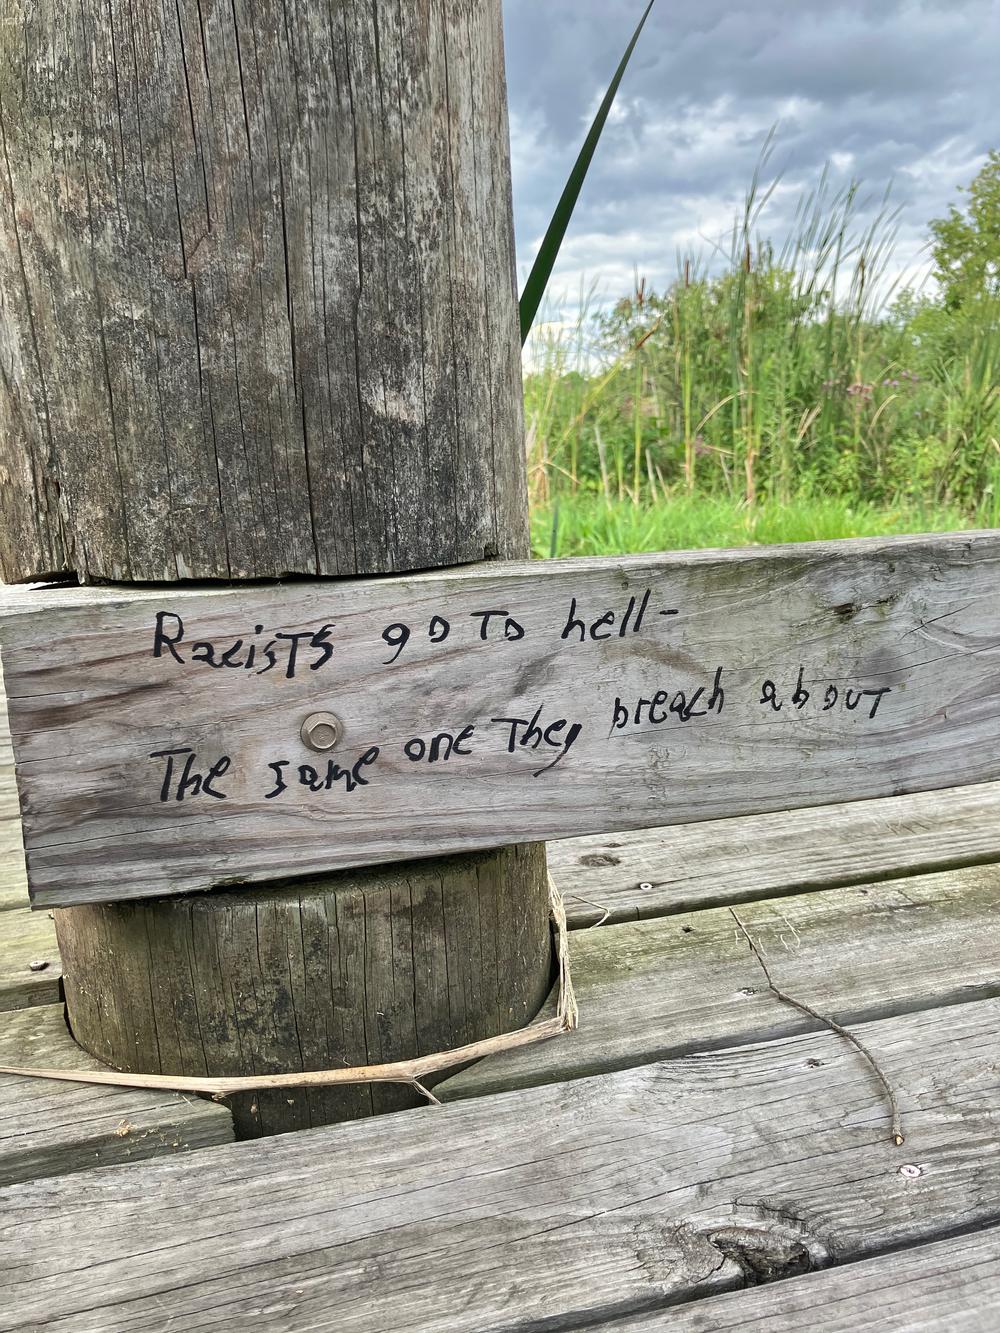 Racists go to hell-
The same one they preach about